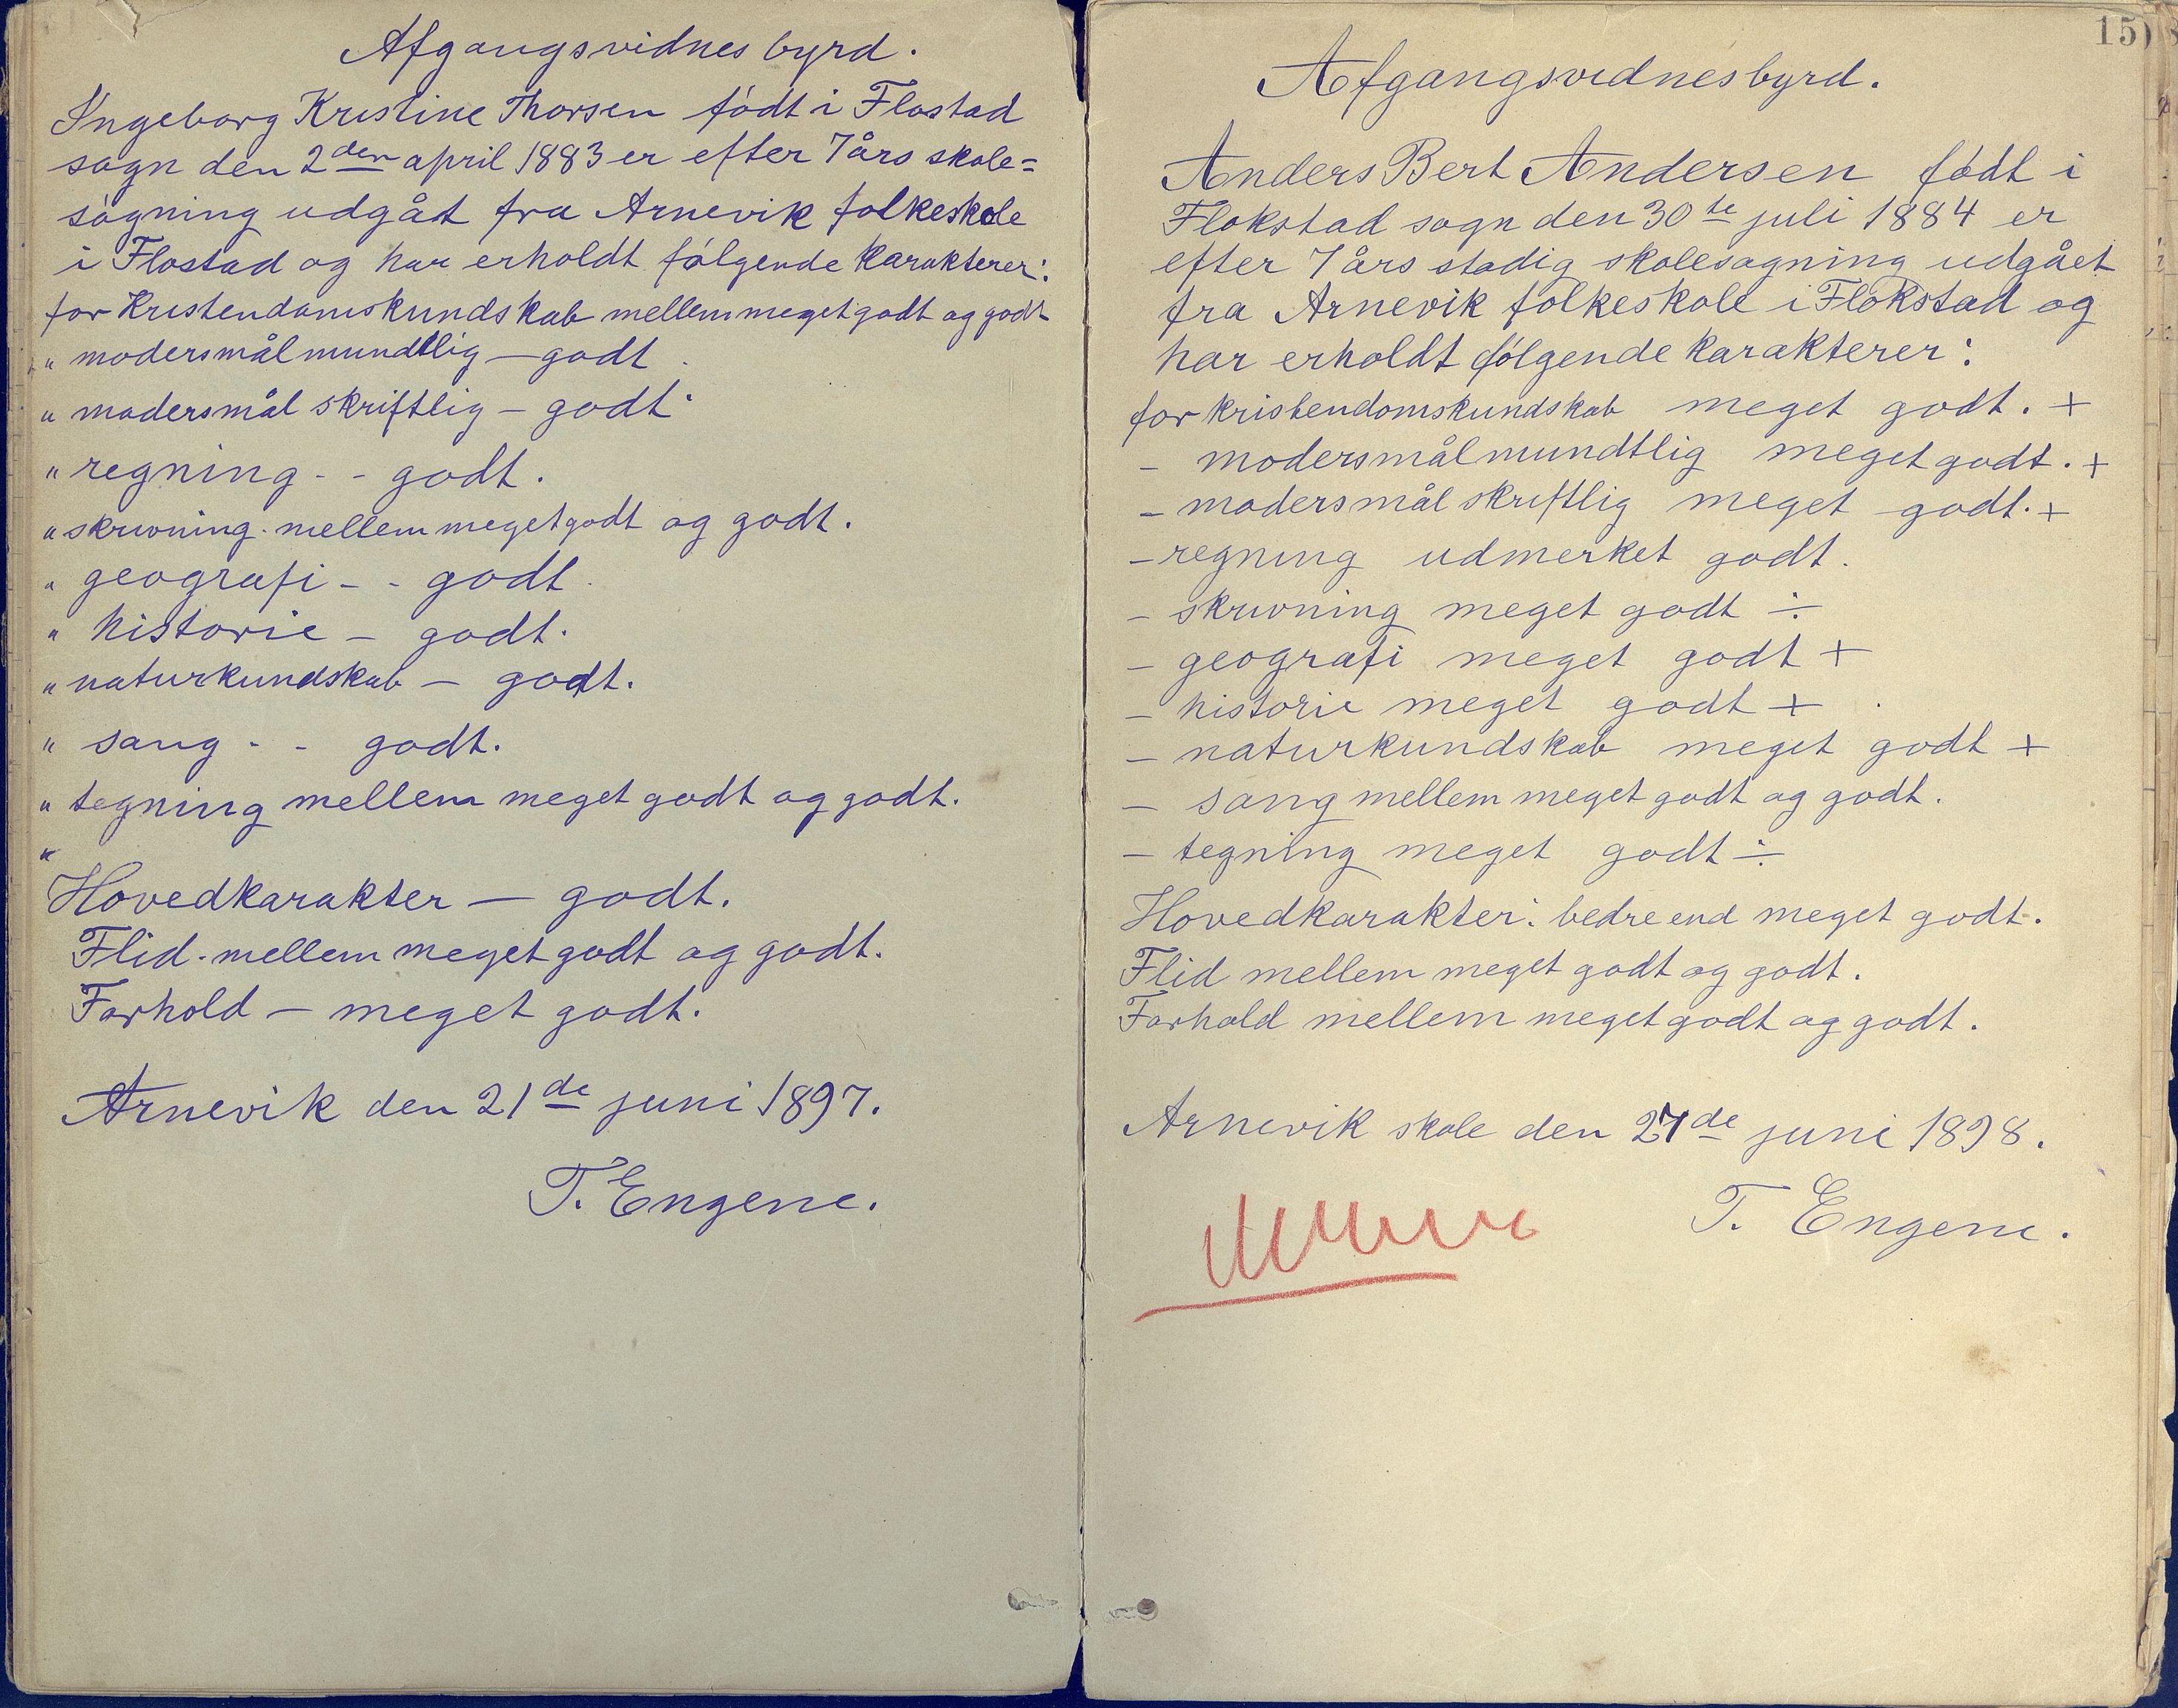 Afgangsvidnesbyrd.
Ingeborg Kristine Thorsen født i Flostad
sogn den 2den april 1883 er efter 7 års skole=
søgning udgåt fra Arnevik folkeskole
i Flostad og har erholdt følgende karakterer:
for Kristendomskundskab mellem meget godt og godt
" modersmål mundtlig — godt
" modersmål skriftlig — godt
" regning - - godt.
" skrivning - mellem meget godt og godt.
" geografi - - godt.
" historie — godt.
" naturkundskab — godt.
" sang - - godt.
" tegning mellem meget godt og godt.
"
Hovedkarakter — godt.
Flid - mellem meget godt og godt.
Forhold — meget godt.
Arnevik den 21de juni 1897.
T. Engene.
15)
Afgangsvidnesbyrd.
Anders Bert Andersen født i
Flokstad sogn den 30te juli 1884 er
efter 7 års stadig skolesøgning udgået
fra Arnevik folkeskole i Flokstad og
har erholdt følgende karakterer:
for kristendomskundskab meget godt. +
— modersmål mundtlig meget godt. +
— modersmål skriftlig meget godt. +
— regning udmerket godt.
— skrivning meget godt ÷
— geografi meget godt +
— historie meget godt +
— naturkundskab meget godt +
— sang mellem meget godt og godt.
— tegning meget godt ÷
Hovedkarakter: bedre end meget godt.
Flid mellem meget godt og godt.
Forhold mellem meget godt og godt.
Arnevik skole den 27de juni 1898.
T. Engene.